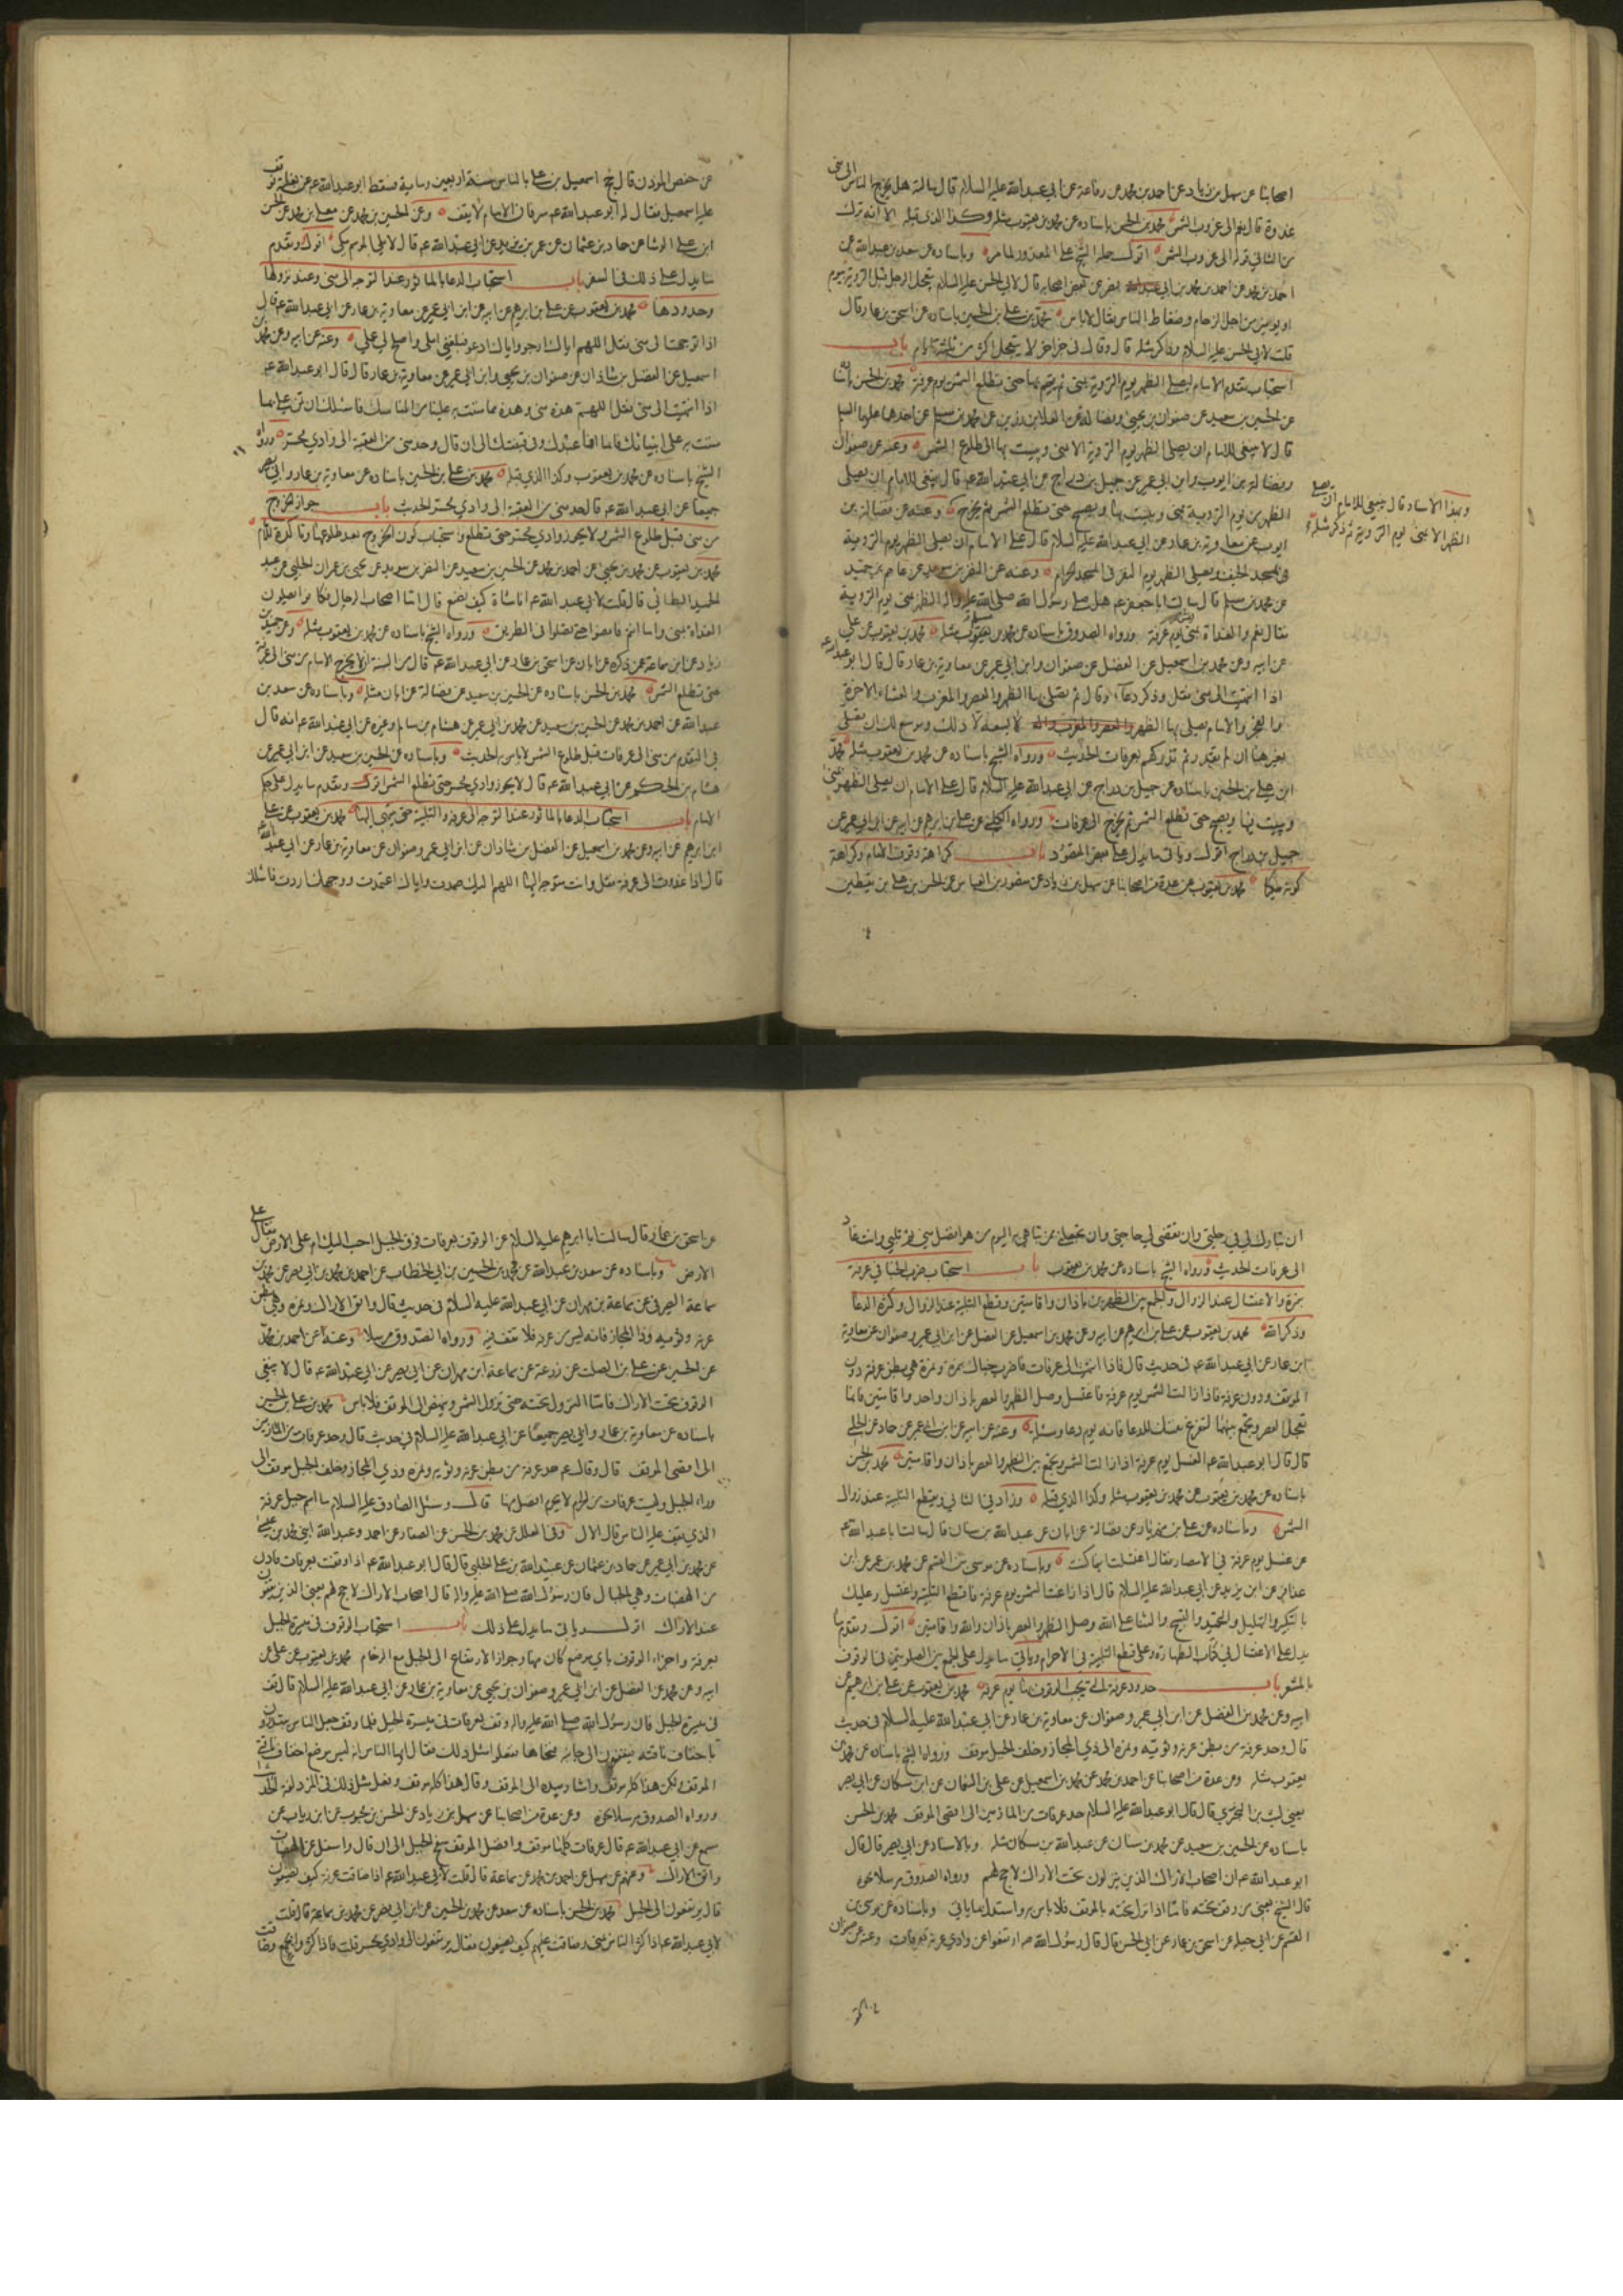 اصحابنا عن سهل بن زياد عن احمد بن محمد عن رفاعة عن ابي عبدالله عليه السلام قال سالته هل يخرج الناس الى منى
غدوة قال نعم الى غروب الشمس محمد بن الحسن باسناده عن محمد بن يعقوب مثله وكذا الذي قبله الا انه ترك
من الثاني قوله الى غروب الشمس اقول حمله الشيخ على المعذور لما مر وباسناده عن سعد بن عبدالله عن
احمد بن محمد عن احمد بن محمد بن ابي نصر عن بعض اصحابه قال قال لابي الحسن عليه السلام يتعجل الرجل قبل التروية بيوم
او يومين من اجل الزحام وضغاط الناس فقال لا باس محمد بن علي بن الحسين باسناده عن اسحق بن عمار قال
قلت لابي الحسن عليه السلام وذكر مثله قال وقال في خبر اخر لا يتعجل اكثر من ثلثة ايام باب
استحباب تقدم الامام ليصلي الظهر يوم التروية بمنى ثم يقيم بها حتى تطلع الشمس يوم عرفة محمد بن الحسن باسناده
عن الحسين بن سعيد عن صفوان بن يحيى وفضالة عن العلا بن رزين عن محمد بن مسلم عن احدهما عليهما السلم
قال لا ينبغي للامام ان يصلي الظهر يوم التروية الا بمنى ويبيت بها الى طلوع الشمس وعنه عن صفوان
وفضالة بن ايوب وابن ابي عمير عن جميل بن دراج عن ابي عبدالله عم قال ينبغي للامام ان يصلي
الظهر من يوم التروية بمنى ويبيت بها ويصبح حتى تطلع الشمس ثم يخرج وعنه عن فضالة بن
ايوب عن معاوية بن عمار عن ابي عبدالله عليه السلام قال على الامام ان يصلي الظهر يوم التروية
في مسجد الخيف ويصلي الظهر يوم النفر في المسجد الحرام وعنه عن النضر بن سويد عن عاصم بن حميد
عن محمد بن مسلم قال سالت ابا جعفر عم هل صلى رسول الله صلى الله عليه واله الظهر بمنى يوم التروية
فقال نعم والغداة بمنى يوم عرفة ورواه الصدوق باسناده عن محمد بن مسلم مثله محمد بن يعقوب عن علي
عن ابيه وعن محمد بن اسمعيل عن الفضل عن صفوان وابن ابي عمير عن معاوية بن عمار قال قال ابو عبدالله عم
اذا انتهيت الى منى فقل وذكر دعاء وقال ثم تصلي بها الظهر والعصر والمغرب والعشاء الاخرة
والفجر والامام يصلي بها الظهر لا يسعه الا ذلك وموسع لك ان تصلي
بغيرها ان لم تقدر ثم تدركهم بعرفات الحديث ورواه الشيخ باسناده عن محمد بن يعقوب مثله محمد
ابن علي بن الحسين باسناده عن جميل بن دراج عن ابي عبدالله عليه السلام قال على الامام ان يصلي الظهر بمنى
ويبيت بها ويصبح حتى تطلع الشمس ثم يخرج الى عرفات ورواه الكليني عن علي بن ابراهيم عن ابيه عن ابن ابي عمير عن
جميل بن دراج اقول وياتي ما يدل على بعض المقصود باب كراهة وقوف الامام وكراهة
كونه مكيا محمد بن يعقوب عن عدة من اصحابنا عن سهل بن زياد عن منصور بن العباس عن الحسن بن علي بن يقطين
وبهذا الاسناد قال ينبغي للامام ان يصلي
الظهر الا بمنى يوم التروية ثم ذكر مثله
عن حفص المؤذن قال حج اسمعيل بن علي بالناس سنة اربعين ومائة فسقط ابو عبدالله عم عن بغلته فوقف
عليه اسمعيل فقال له ابو عبدالله عم سر فان الامام لا يقف وعن الحسين بن محمد عن معلى بن محمد عن الحسن
ابن علي الوشا عن حماد بن عثمان عن عمر بن يزيد عن ابي عبدالله عم قال لا يلي الموسم مكي اقول وتقدم
ما يدل على ذلك في السفر باب استحباب الدعا بالماثور عند التوجه الى منى وعند نزولها
وحدودها محمد بن يعقوب عن علي بن ابراهيم عن ابيه عن ابن ابي عمير عن معاوية بن عمار عن ابي عبدالله عم قال
اذا توجهت الى منى فقل اللهم اياك ارجو واياك ادعو فبلغني املي واصلح لي عملي وعنه عن ابيه وعن محمد بن
اسمعيل عن الفضل بن شاذان عن صفوان بن يحيى وابن ابي عمير عن معاوية بن عمار قال قال ابو عبدالله عم
اذا انتهيت الى منى فقل اللهم هذه منى وهذه مما مننت به علينا من المناسك فاسئلك ان تمن علي بما
مننت به على انبيائك فانما انا عبدك وفي قبضتك الى ان قال وحد منى من العقبة الى وادي محسر ورواه
الشيخ باسناده عن محمد بن يعقوب وكذا الذي قبله محمد بن علي بن الحسين باسناده عن معاوية بن عمار وابي بصير
جميعا عن ابي عبدالله عم قال حد منى من العقبة الى وادي محسر الحديث باب جواز الخروج
من منى قبل طلوع الشمس ولا يجوز وادي محسر حتى تطلع واستحباب كون الخروج بعد طلوعها وتاكده للامام
محمد بن يعقوب عن محمد بن يحيى عن احمد بن محمد عن الحسين بن سعيد عن النضر بن سويد عن يحيى بن عمران الحلبي عن عبد
الحميد الطائي قال قلت لابي عبدالله عم انا مشاة فكيف نصنع قال اما اصحاب الرحال فكانوا يصلون
الغداة بمنى واما انتم فامضوا حتى تصلوا في الطريق ورواه الشيخ باسناده عن محمد بن يعقوب مثله وعن حميد بن
زياد عن ابن سماعة عمن ذكره عن ابان عن اسحق بن عمار عن ابي عبدالله عم قال من السنة الا يخرج الامام من منى الى عرفة
حتى تطلع الشمس محمد بن الحسن باسناده عن الحسين بن سعيد عن فضالة عن ابان مثله وباسناده عن سعد بن
عبدالله عن احمد بن محمد عن الحسين بن سعيد عن محمد بن ابي عمير عن هشام بن سالم وغيره عن ابي عبدالله عم انه قال
في التقدم من منى الى عرفات قبل طلوع الشمس لا باس به الحديث وباسناده عن الحسين بن سعيد عن ابن ابي عمير عن
هشام بن الحكم عن ابي عبدالله عم قال لا يجوز وادي محسر حتى تطلع الشمس اقول وتقدم ما يدل على حكم
الامام باب استحباب الدعا بالماثور عند التوجه الى عرفة والتلبية حتى ينتهى اليها محمد بن يعقوب عن علي
ابن ابراهيم عن ابيه وعن محمد بن اسمعيل عن الفضل بن شاذان عن ابن ابي عمير وصفوان عن معاوية بن عمار عن ابي عبدالله
قال اذا غدوت الى عرفة فقل وانت متوجه اليها اللهم اليك صمدت واياك اعتمدت ووجهك اردت فاسئلك
ان تبارك لي في رحلتي وان تقضي لي حاجتي وان تجعلني ممن تباهي به اليوم من هو افضل مني ثم تلبي وانت غاد
الى عرفات الحديث ورواه الشيخ باسناده عن محمد بن يعقوب باب استحباب ضرب الخبا في عرفة
بنمرة والاغتسال عند الزوال والجمع بين الظهرين باذان واقامتين وقطع التلبية عند الزوال وكثرة الدعا
وذكر الله محمد بن يعقوب عن علي بن ابراهيم عن ابيه وعن محمد بن اسمعيل عن الفضل عن ابن ابي عمير وصفوان عن معاوية
ابن عمار عن ابي عبدالله عم في حديث قال فاذا انتهيت الى عرفات فاضرب خباك بنمرة ونمرة هي بطن عرنة دون
الموقف ودون عرفة فاذا زالت الشمس يوم عرفة فاغتسل وصل الظهر والعصر باذان واحد واقامتين فانما
تعجل العصر وتجمع بينهما لتفرغ نفسك للدعا فانه يوم دعا ومسئلة وعنه عن ابيه عن ابن ابي عمير عن حماد عن الحلبي
قال قال ابو عبدالله عم الغسل يوم عرفة اذا زالت الشمس وتجمع بين الظهر والعصر باذان واقامتين محمد بن الحسن
باسناده عن محمد بن يعقوب مثله وكذا الذي قبله وزاد في الثاني ويقطع التلبية عند زوال
الشمس وباسناده عن علي بن مهزيار عن فضالة عن ابان عن عبدالله بن سنان قال سالت ابا عبدالله عم
عن غسل يوم عرفة في الامصار فقال اغتسل اينما كنت وباسناده عن موسى بن القسم عن محمد بن عمر عن ابن
عذافر عن ابن يزيد عن ابي عبدالله عليه السلام قال اذا زاغت الشمس يوم عرفة فاقطع التلبية واغتسل وعليك
بالتكبير والتهليل والتحميد والتسبيح والثنا على الله وصل الظهر والعصر باذان واقامتين اقول وتقدم ما
يدل على الاغتسال في كتاب الطهارة وعلى قطع التلبية في الاحرام وياتي ما يدل على الجمع بين الصلوتين في الوقوف
بالمشعر باب حدود عرفة التي يجب الوقوف بها يوم عرفة محمد بن يعقوب عن علي بن ابراهيم عن
ابيه وعن محمد بن الفضل عن ابن ابي عمير وصفوان عن معاوية بن عمار عن ابي عبدالله عليه السلام في حديث
قال وحد عرفة من بطن عرنة وثوية ونمرة الى ذي المجاز وخلف الجبل موقف ورواه الشيخ باسناده عن محمد بن
يعقوب مثله وعن عدة من اصحابنا عن احمد بن محمد عن محمد بن اسمعيل عن علي بن النعمان عن ابن مسكان عن ابي بصير
يعني ليث بن البختري قال قال ابو عبدالله عليه السلام حد عرفات من المازمين الى اقصى الموقف محمد بن الحسن
باسناده عن الحسين بن سعيد عن محمد بن سنان عن عبدالله بن مسكان مثله وبالاسناد عن ابي بصير قال قال
ابو عبدالله عم ان اصحاب الاراك الذين ينزلون تحت الاراك لا حج لهم ورواه الصدوق مرسلا نحوه
قال الشيخ يعني من وقف تحته فاما اذا نزل تحته بالموقف فلا باس به واستدل بما ياتي وباسناده عن موسى بن
القسم عن ابي جبلة عن اسحق بن عمار عن ابي الحسن قال قال رسول الله ص ارتفعوا عن وادي عرنة بعرفات وعنه عن صفوان
عن اسحق بن عمار قال سالت ابا ابراهيم عليه السلام عن الوقوف بعرفات فوق الجبل احب اليك ام على الارض فقال على
الارض وباسناده عن سعد بن عبدالله عن محمد بن الحسين بن ابي الخطاب عن احمد بن محمد بن ابي نصر عن محمد بن
سماعة الصيرفي عن سماعة بن مهران عن ابي عبدالله عليه السلام في حديث قال واتق الاراك ونمرة وهي بطن
عرنة وثوية وذا المجاز فانه ليس من عرفة فلا تقف فيه ورواه الصدوق مرسلا وعنه عن احمد بن محمد
عن الحسين عن علي بن الصلت عن زرعة عن سماعة ابن مهران عن ابي بصير عن ابي عبدالله عم قال لا ينبغي
الوقوف تحت الاراك فاما النزول تحته حتى تزول الشمس وينهض الى الموقف فلا باس محمد بن علي بن الحسين
باسناده عن معاوية بن عمار وابي بصير جميعا عن ابي عبدالله عليه السلام في حديث قال وحد عرفات من المازمين
الى اقصى الموقف قال وقال عم حد عرفة من بطن عرنة وثوية ونمرة وذي المجاز وخلف الجبل موقف الى
وراء الجبل وليست عرفات من الحرم والحرم افضل منها قال وسئل الصادق عليه السلام ما اسم جبل عرفة
الذي يقف عليه الناس قال الال وفي العلل عن محمد بن الحسن عن الصفار عن احمد وعبدالله ابني محمد بن عيسى
عن محمد بن ابي عمير عن حماد بن عثمان عن عبيدالله بن علي الحلبي قال قال ابو عبدالله عم اذا وقفت بعرفات فادن
من الهضبات وهي الجبال فان رسول الله صلى الله عليه واله قال اصحاب الاراك لا حج لهم يعني الذين يقفون
عند الاراك اقول وياتي ما يدل على ذلك باب استحباب الوقوف في ميسرة الجبل
بعرفة واجزاء الوقوف باي موضع كان منها وجواز الارتفاع الى الجبل مع الزحام محمد بن يعقوب عن علي عن
ابيه وعن محمد عن الفضل عن ابن ابي عمير وصفوان بن يحيى عن معاوية بن عمار عن ابي عبدالله عليه السلام قال قف
في ميسرة الجبل فان رسول الله صلى الله عليه واله وقف بعرفات في ميسرة الجبل فلما وقف جعل الناس يبتدرون
اخفاف ناقته فيقفون الى جانبه فنحاها ففعلوا مثل ذلك فقال ايها الناس انه ليس موضع اخفاف ناقتي
الموقف ولكن هذا كله موقف واشار بيده الى الموقف وقال هذا كله موقف وفعل مثل ذلك في المزدلفة الحديث
ورواه الصدوق مرسلا نحوه وعن عدة من اصحابنا عن سهل بن زياد عن الحسن بن محبوب عن ابن رياب عن
مسمع عن ابي عبدالله عم قال عرفات كلها موقف وافضل الموقف سفح الجبل الى ان قال واسفل عن الهضبات
واتق الاراك وعنهم عن سهل عن احمد بن محمد عن سماعة قال قلت لابي عبدالله عم اذا ضاقت عرفة كيف يصنعون
قال يرتفعون الى الجبل محمد بن الحسن باسناده عن سعد عن محمد بن الحسين عن ابن ابي نصر عن محمد بن سماعة قال قلت
لابي عبدالله عم اذا كثر الناس بمنى وضاقت عليهم كيف يصنعون فقال يرتفعون الى وادي محسر قلت فاذا كثروا بجمع وضاقت